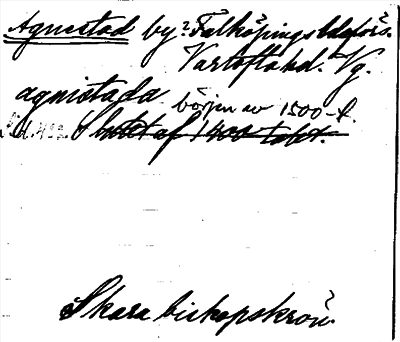 Agnestad by? Falköpings ldsförs.
Vartoftahd. Vg.
agnistada början av 1500-t.
Slutet af 1400 talet.
Skara biskopskrön.